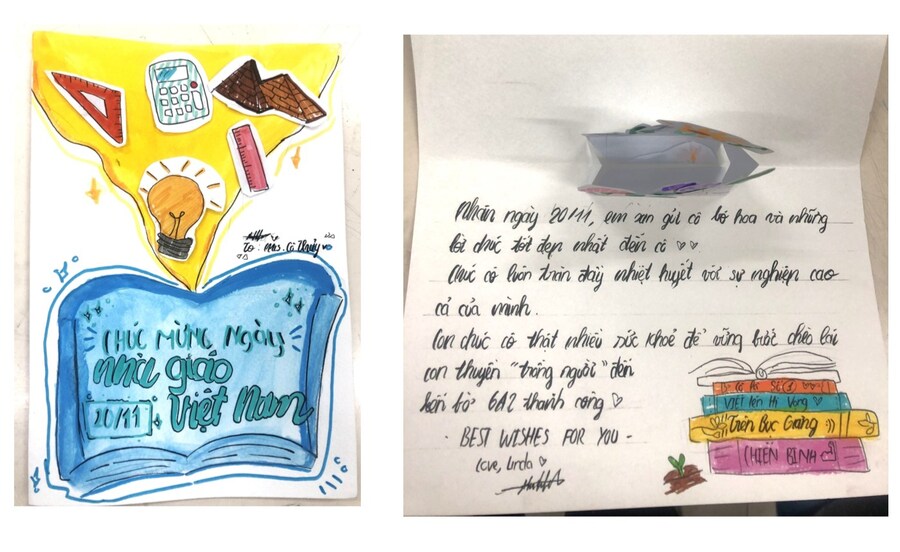 To: Mrs. Cô Thuỷ
CHÚC MỪNG NGÀY
nhà giáo
20/11
Việt Nam
Nhân ngày 20/11, em xin gửi cô bó hoa và những
lời chúc tốt đẹp nhất đến cô
Chúc cô luôn tràn đầy nhiệt huyết với sự nghiệp cao
cả của mình.
Con chúc cô thật nhiều sức khoẻ để vững bước chèo lái
con thuyền "trồng người" đến
bến bờ 6A2 thành công
- BEST WISHES FOR YOU -
Love, Linda
VIẾT lên Hi Vọng
Trên Bục Giảng
CHIẾN BINH